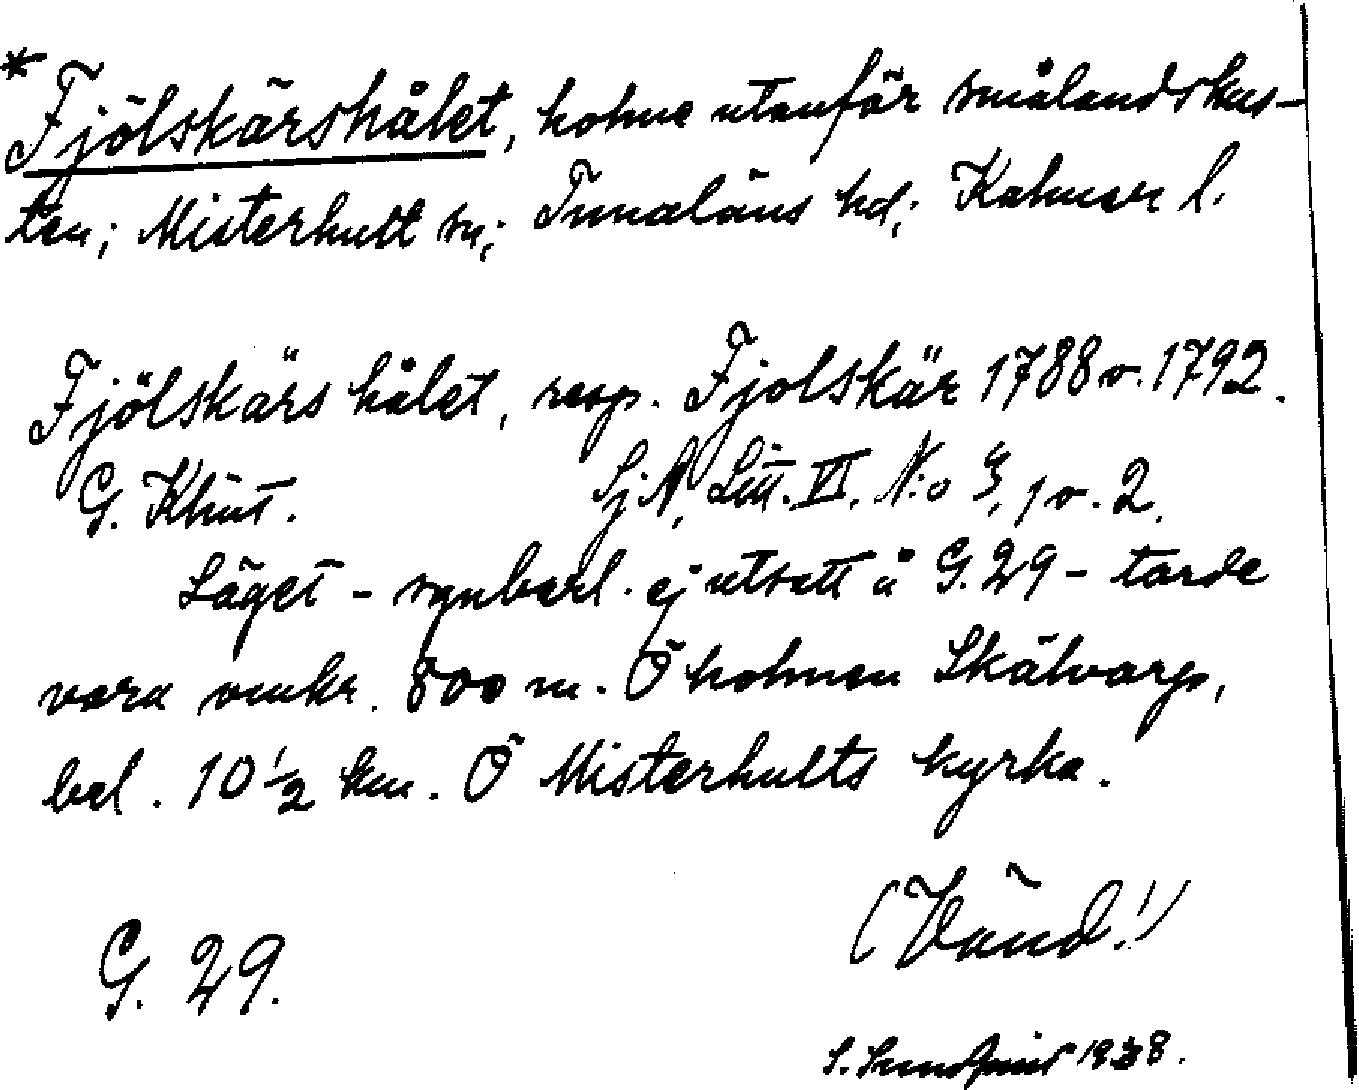 * Fjölskärshålet, holme utanför smålandskus-
ten; Misterhult sn; Tunaläns hd; Kalmar l.
Fjölskärs hålet, resp. Fjolskär 1788 o. 1792.
G. Klint. Sj.A. Litt. VI. N:o 3, 1 o. 2.
Läget - synbarl. ej utsatt å G. 29 - torde
vara omkr. 800 m. Ö holmen Skälvarp,
bel. 10 1/2 km. Ö Misterhults kyrka.
(Vänd!)
G. 29.
S. 1938.